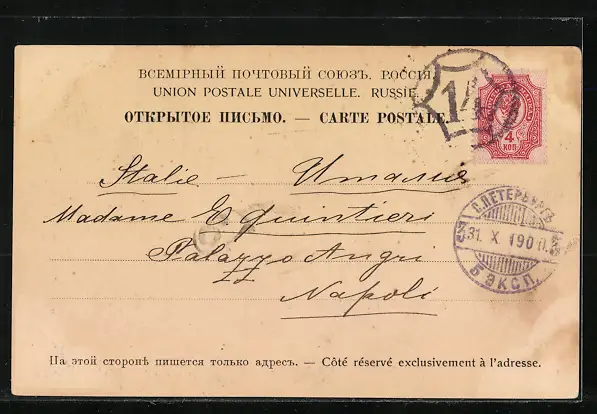 ВСЕМІРНЫЙ ПОЧТОВЫЙ СОЮЗЪ. РОССІЯ.
UNION POSTALE UNIVERSELLE. RUSSIE.
ОТКРЫТОЕ ПИСЬМО. — CARTE POSTALE.
1
4
КОП
Italie — Италия
Madame E Quintieri
Palazzo Angri
Napoli
С.ПЕТЕРБУРГЪ
31. X 190
5 ЭКСП.
На этой сторонѣ пишется только адресъ. — Côté réservé exclusivement à l'adresse.